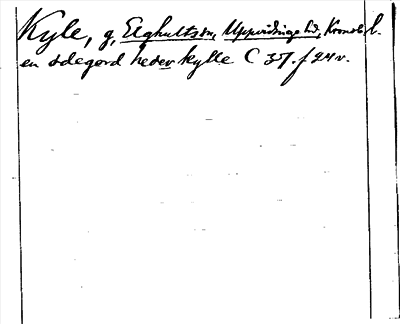 Kyle, g, Elghults sn, Uppvidinge hd, Kronob l.
en ödegord heder kylle C 37. f 24 v.